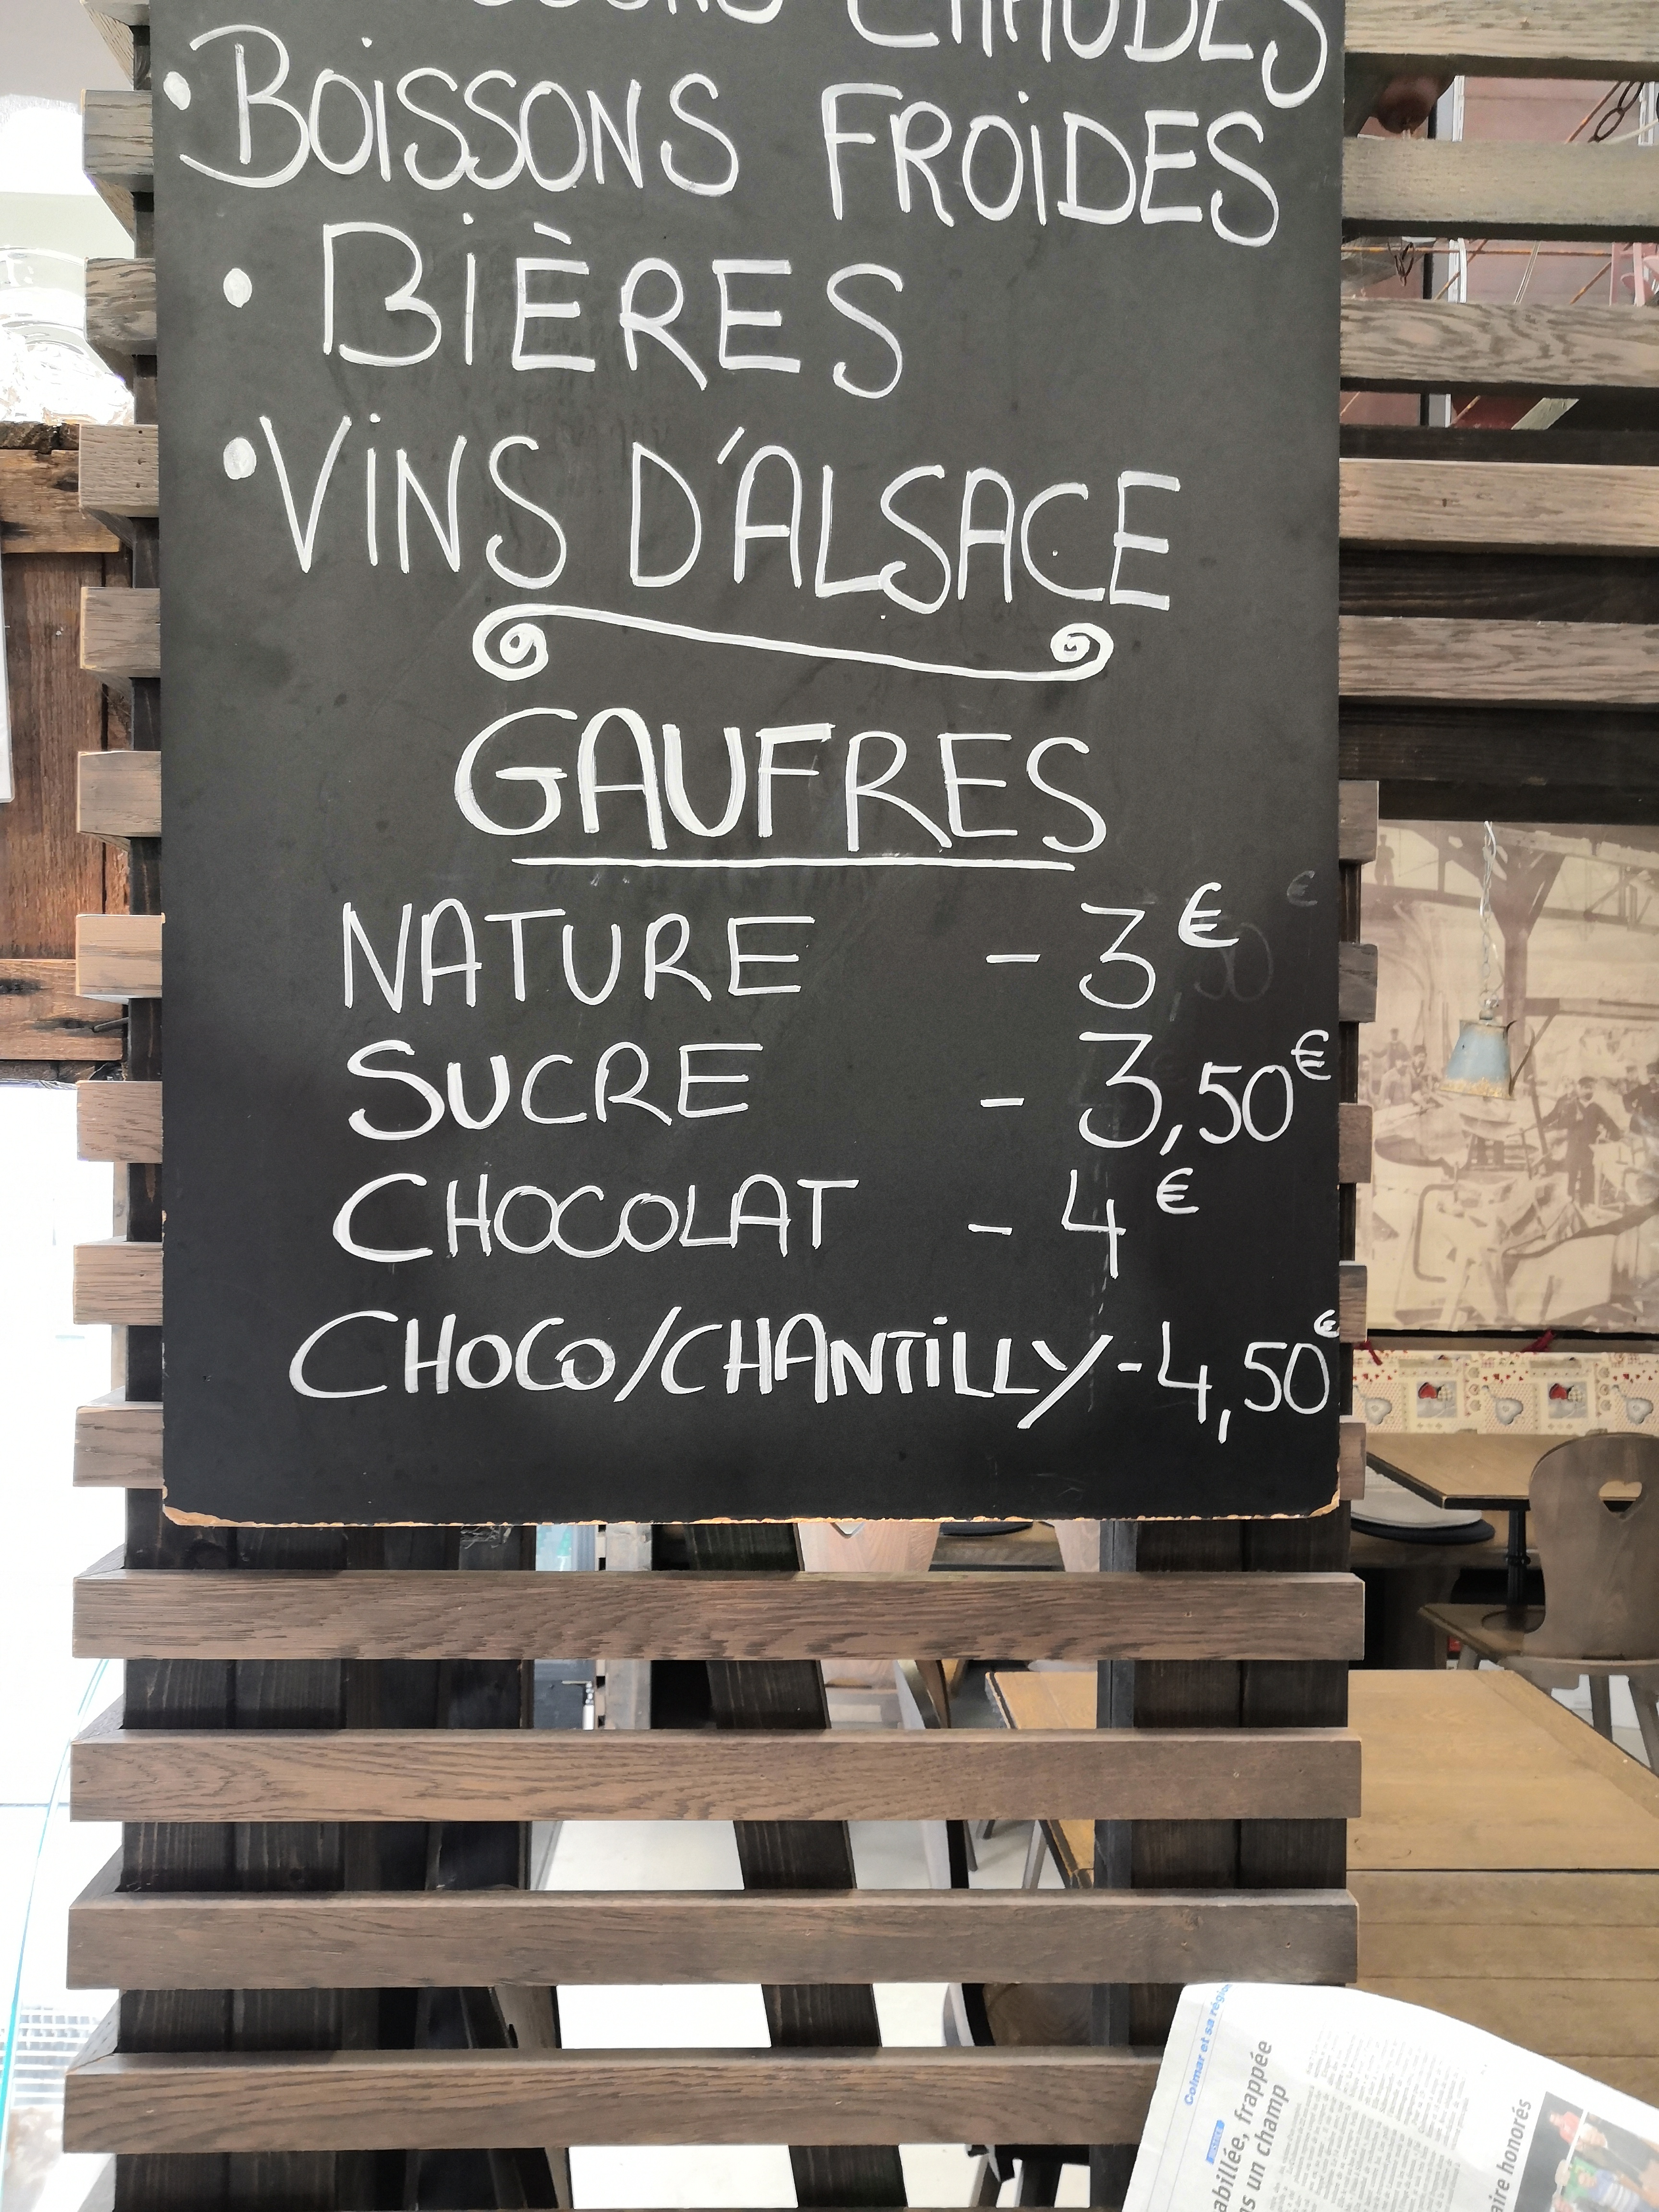 CHAUDES
• BOISSONS FROIDES
• BIÈRES
• VINS D'ALSACE
GAUFRES
NATURE - 3€
SUCRE - 3,50€
CHOCOLAT - 4€
CHOCO/CHANTILLY - 4,50€
Colmar et sa régio
JUSTICE
abillée, frappée
s un champ
aire honorés